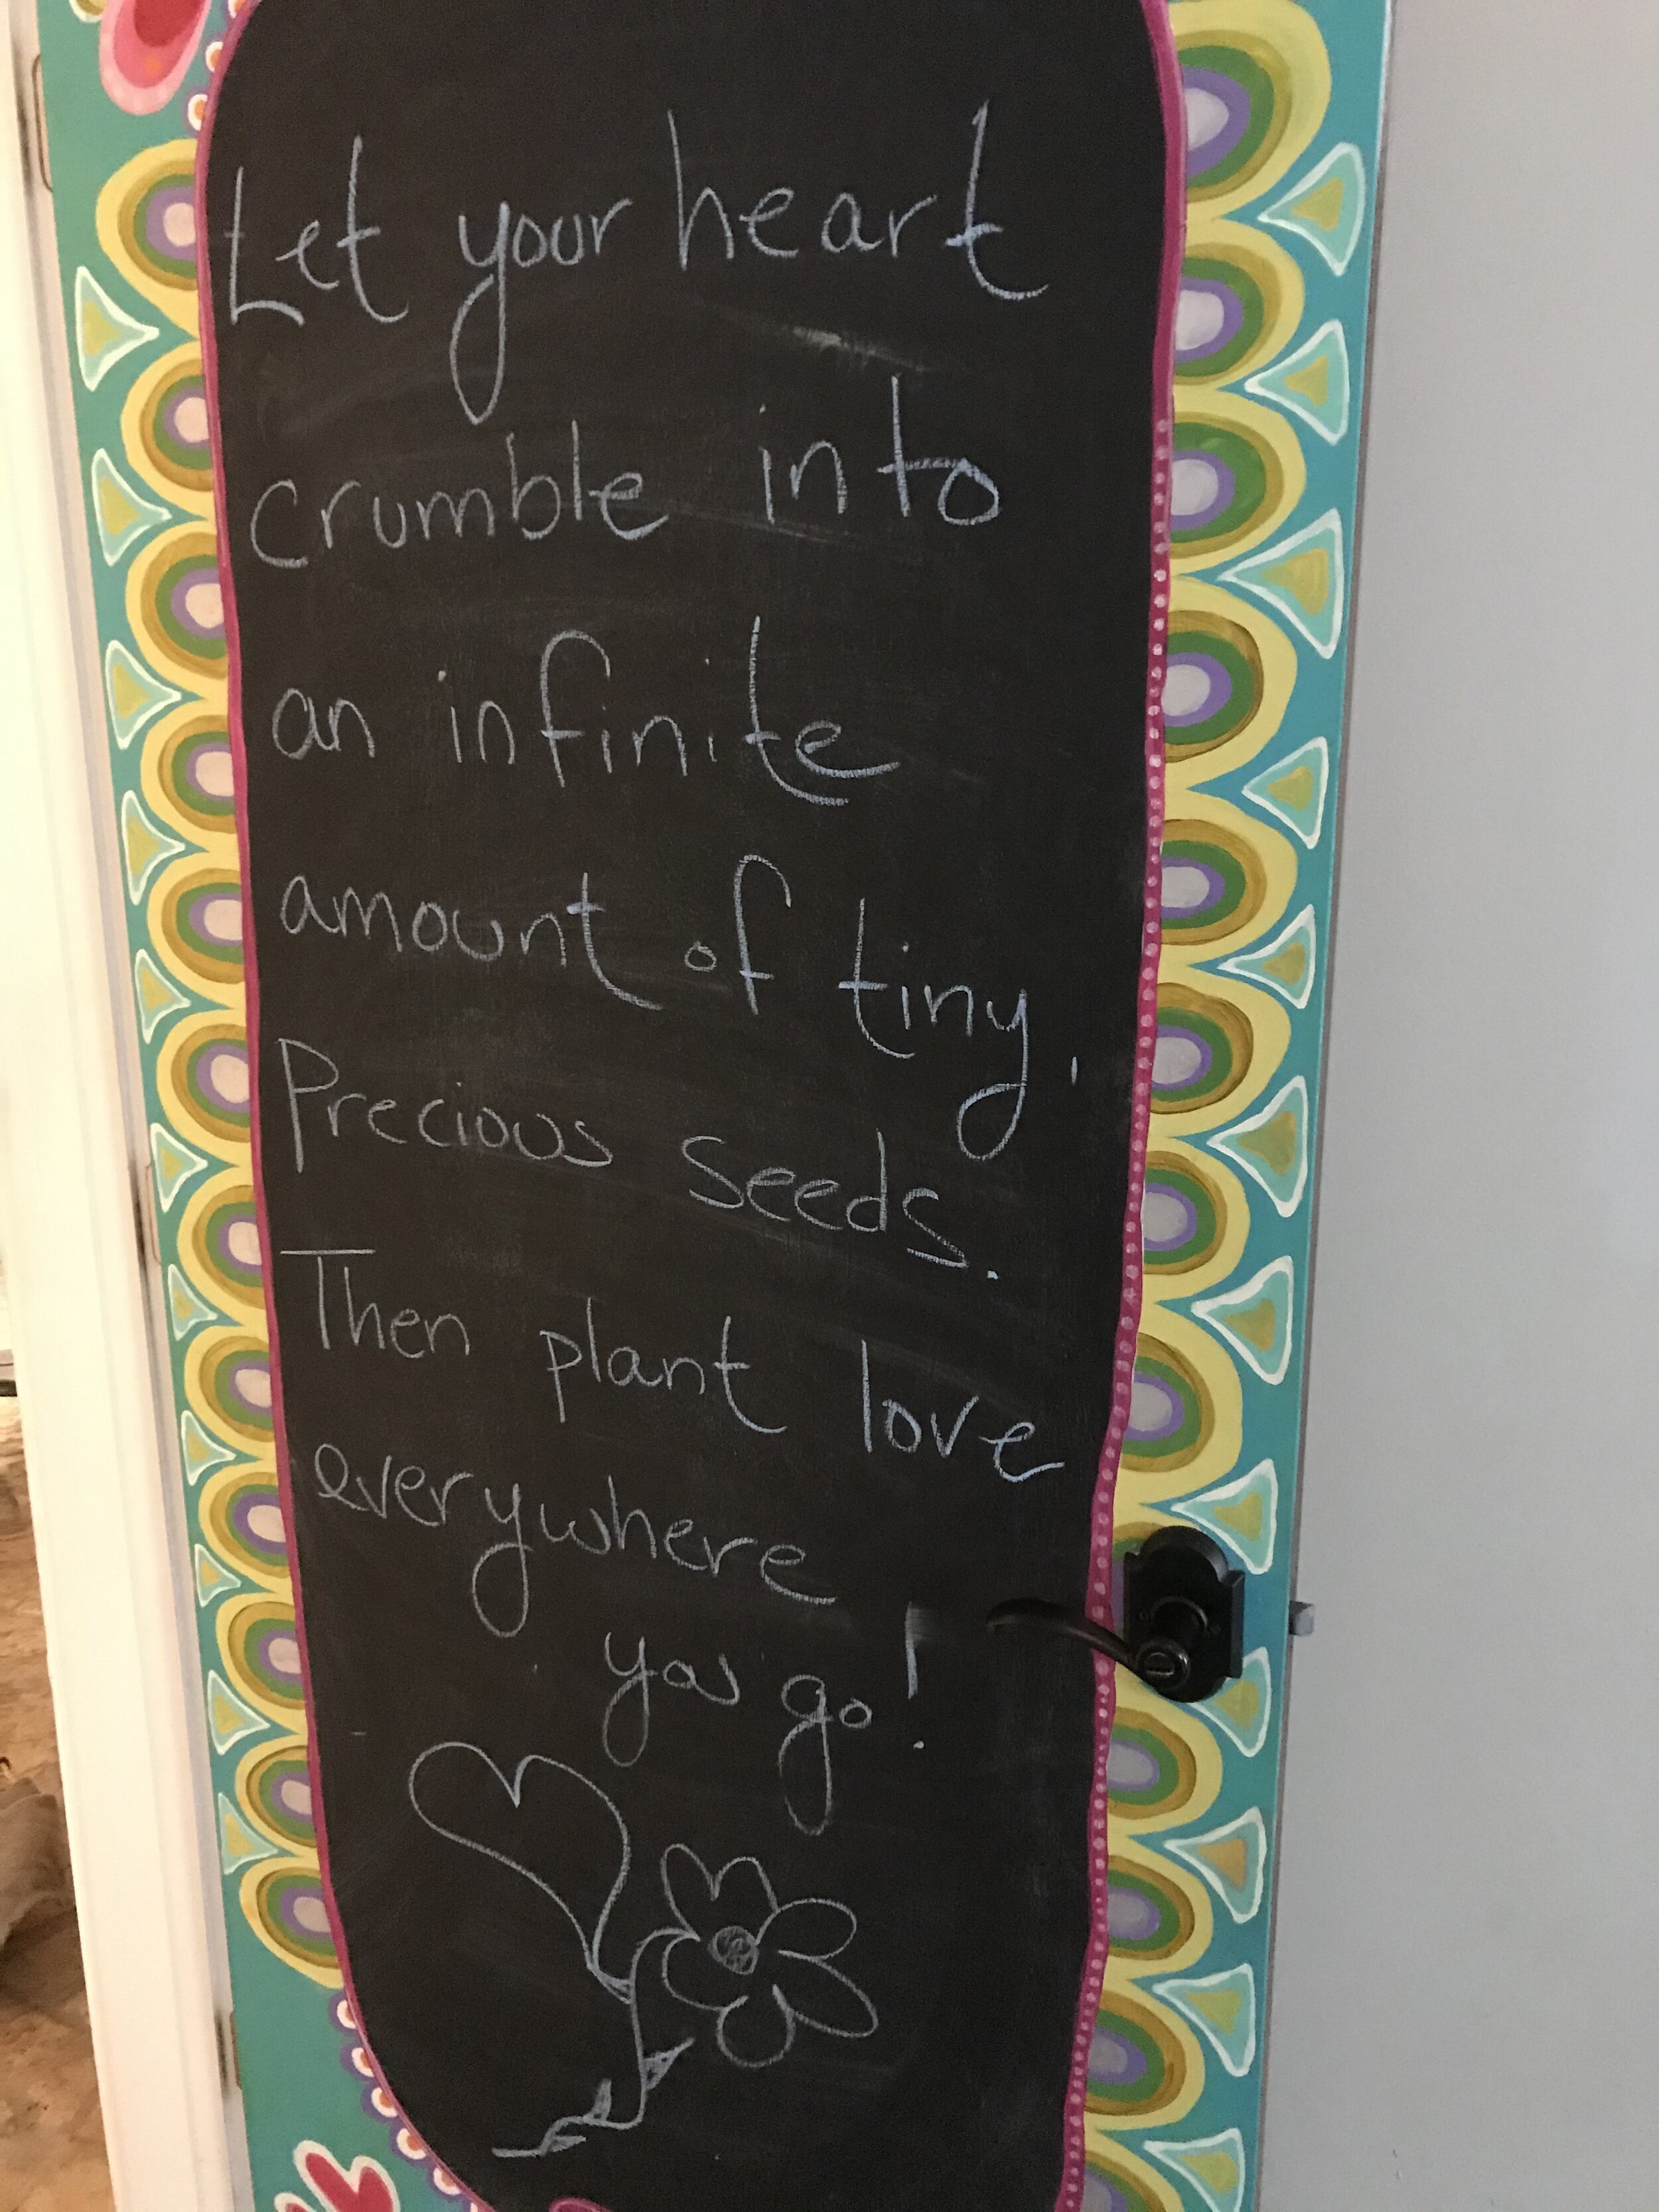 Let your heart
crumble into
an infinite
amount of tiny,
Precious seeds.
Then plant love
everywhere
you go!